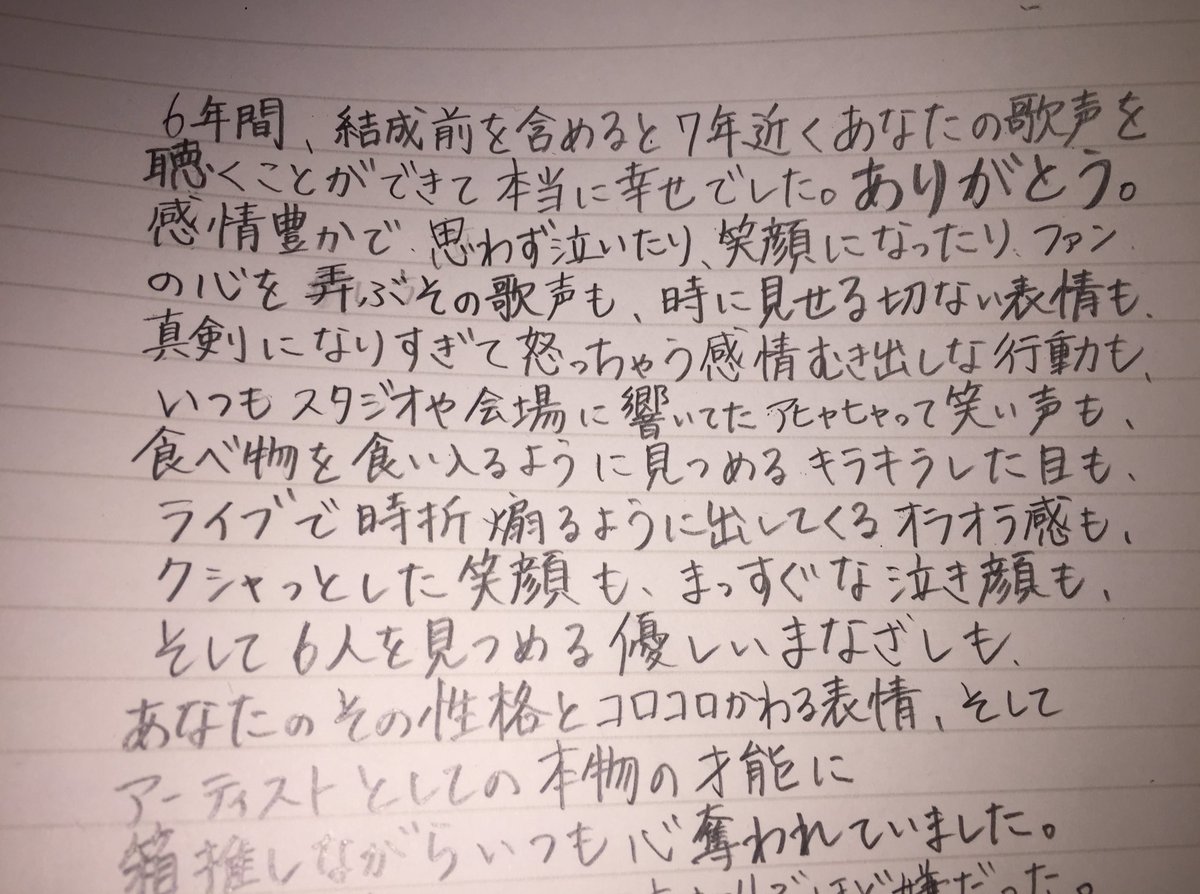 6年間、結成前を含めると7年近くあなたの歌声を
聴くことができて本当に幸せでした。ありがとう。
感情豊かで、思わず泣いたり、笑顔になったり、ファン
の心を弄ぶその歌声も、時に見せる切ない表情も、
真剣になりすぎて怒っちゃう感情むき出しな行動も、
いつもスタジオや会場に響いてたアヒャヒャって笑い声も、
食べ物を食い入るように見つめるキラキラした目も、
ライブで時折煽るように出してくるオラオラ感も、
クシャっとした笑顔も、まっすぐな泣き顔も、
そして6人を見つめる優しいまなざしも、
あなたのその性格とコロコロかわる表情、そして
アーティストとしての本物の才能に
箱推しながらいつも心奪われていました。
ほど嫌だった。